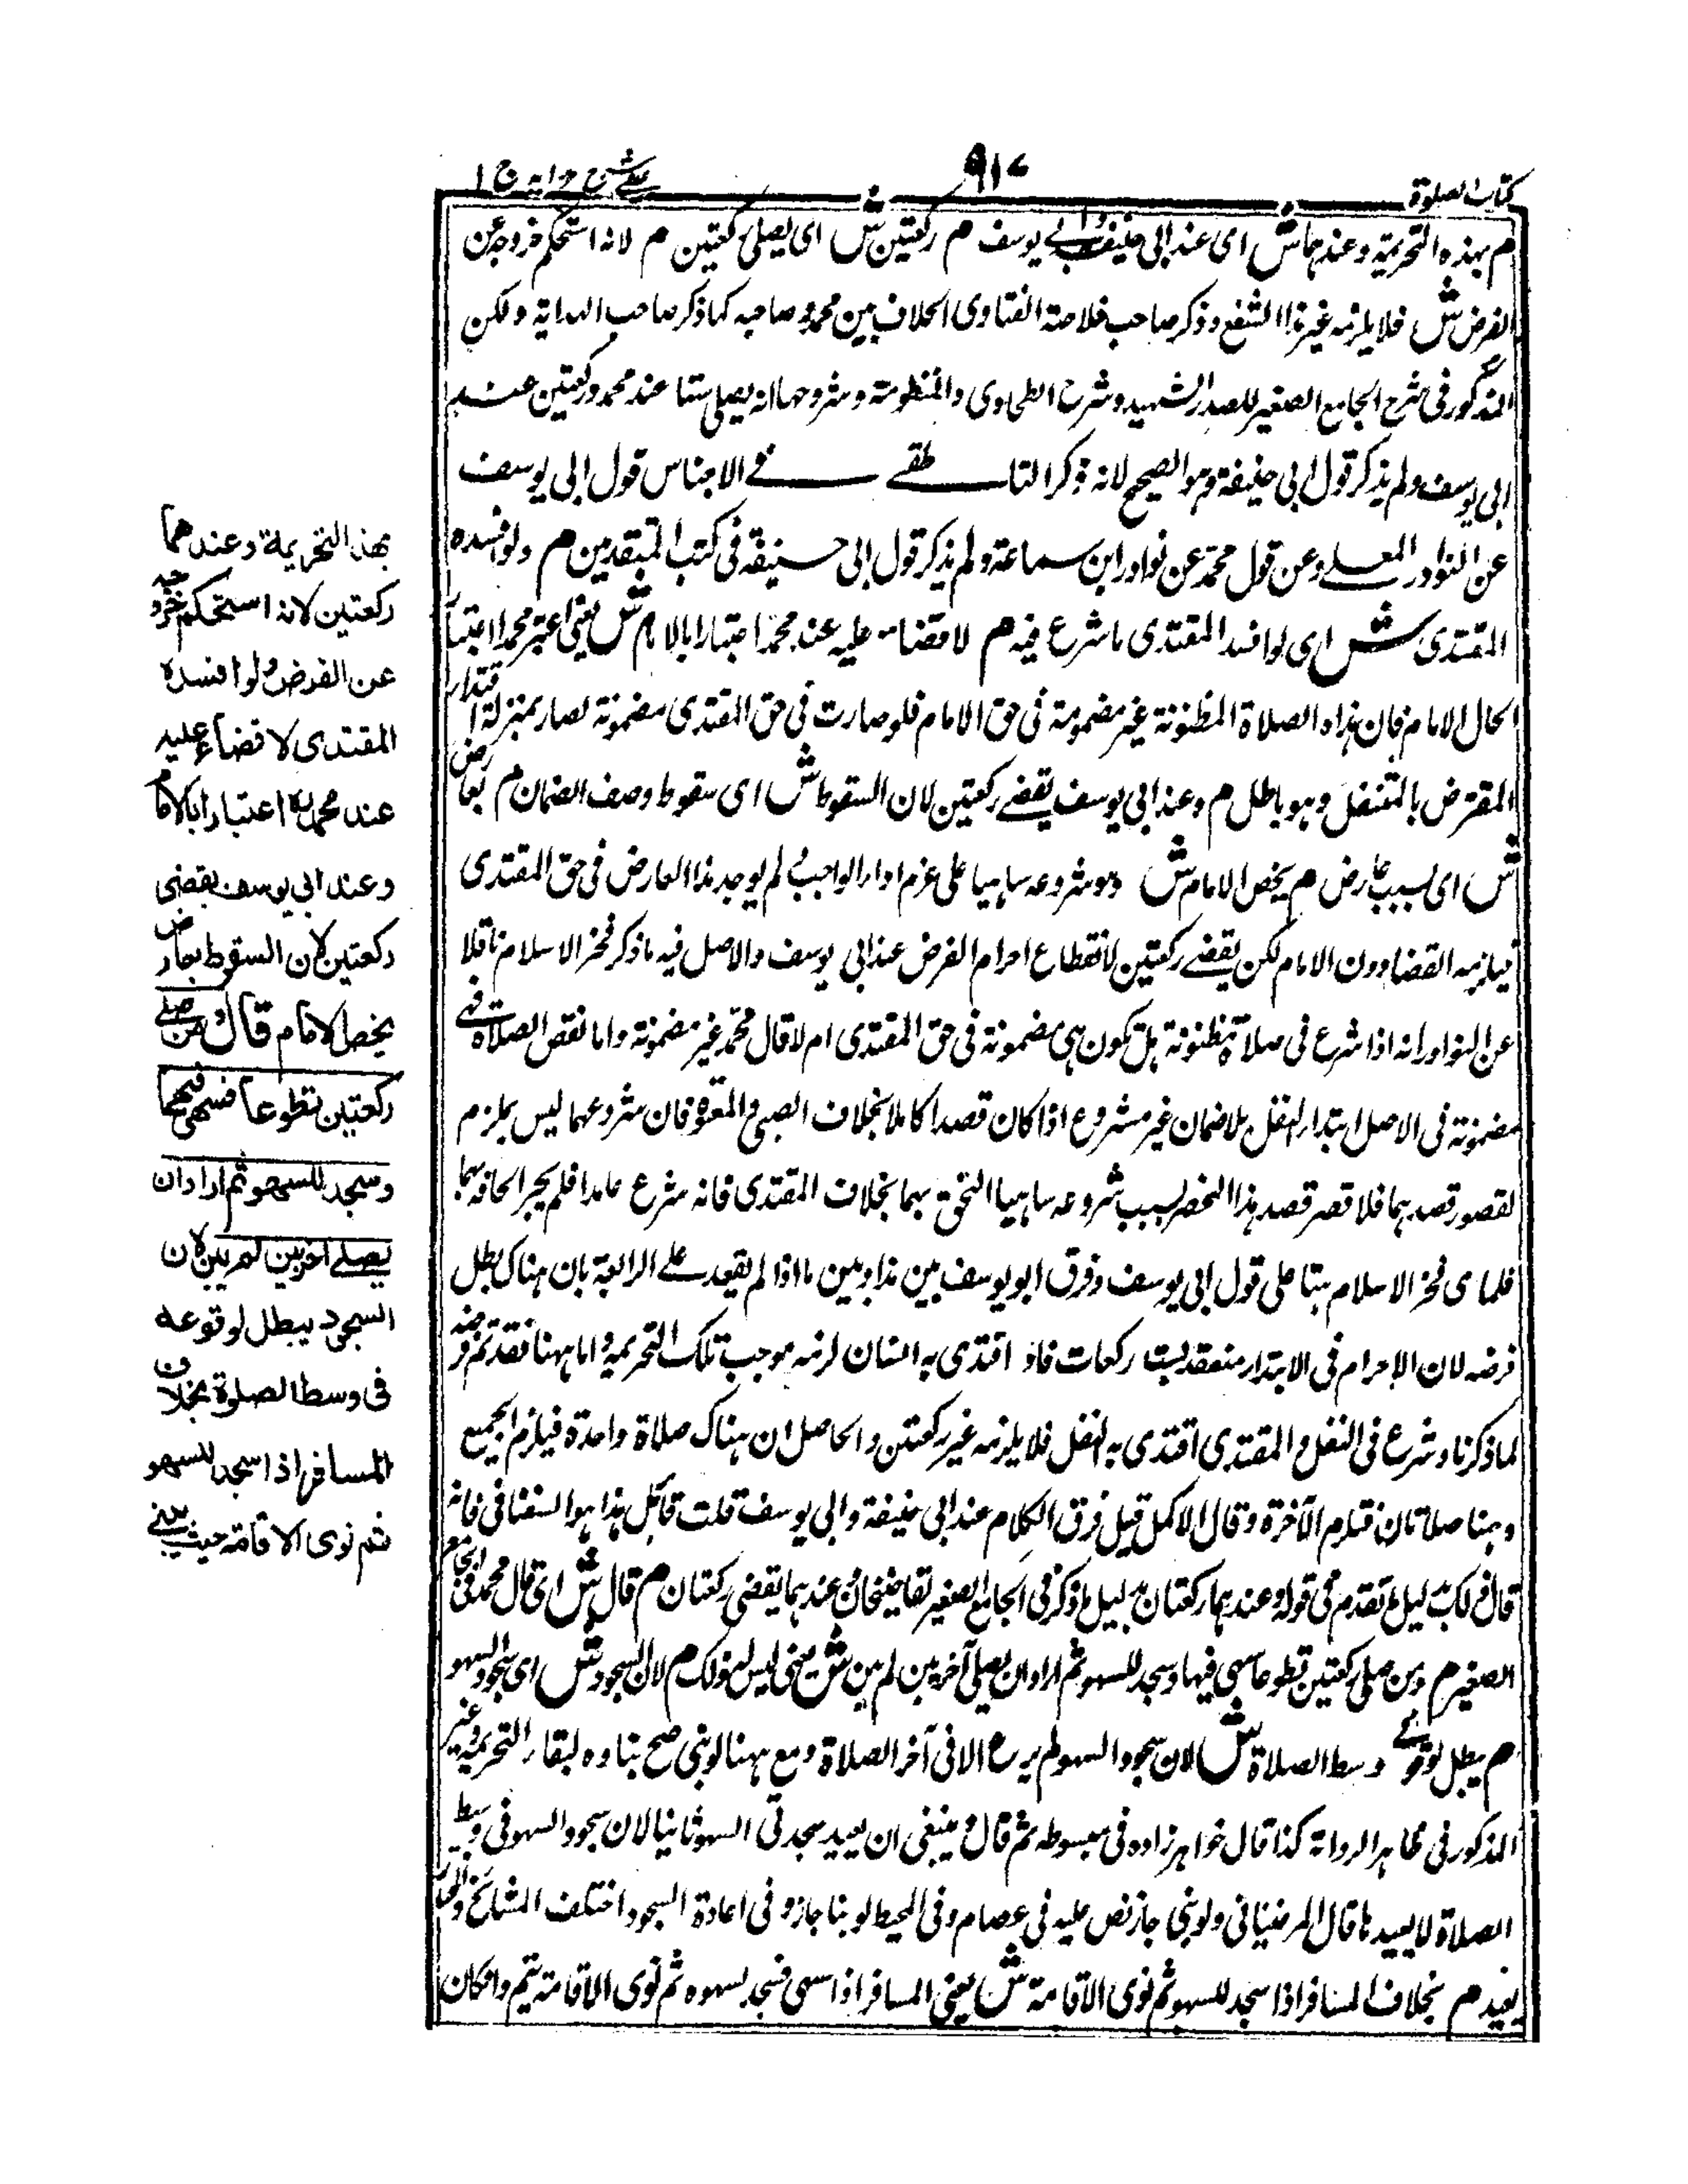 كتاب الصلوة
٩١٧
عينى شرح هدايه ج ١
م بهذه التحريمة وعندهما ش اى عند ابى حنيفة وابى يوسف م ركعتين ش اى يصلى ركعتين م لانه استحكم خروجه عن
الفرض ش فلا يلزمه غير هذا الشفع وذكر صاحب خلاصة الفتاوى الخلاف بين محمد وصاحبه كما ذكر صاحب الهداية ولكن
المذكور فى شرح الجامع الصغير للصدر الشهيد وشرح الطحاوى والمنظومة وشروحها انه يصلى ستا عند محمد وركعتين عند
ابى يوسف ولم يذكر قول ابى حنيفة وهو الصحيح لانه ذكر الناطقى فى الاجناس قول ابى يوسف
عن النوادر المعلى وعن قول محمد عن نوادر ابن سماعة ولم يذكر قول ابى حنيفة فى كتب المتقدمين م ولو افسده
المقتدى ش اى لو افسد المقتدى ما شرع فيه م لا قضاء عليه عند محمد اعتبارا بالامام ش يعنى اعتبر محمد اعتبارا
لحال الامام فان هذه الصلاة المظنونة غير مضمونة فى حق الامام فلو صارت فى حق المقتدى مضمونة لصار بمنزلة اقتداء
المفترض بالمتنفل وهو باطل م وعند ابى يوسف يقضى ركعتين لان السقوط ش اى سقوط وصف الضمان م بعارض
ش اى بسبب عارض م يخص الامام ش وهو شروعه ساهيا على عزم اداء الواجب ولم يوجد هذا العارض فى حق المقتدى
فيلزمه القضاء دون الامام لكن يقضى ركعتين لانقطاع احرام الفرض عند ابى يوسف والاصل فيه ما ذكر فخر الاسلام ناقلا
عن النوادر انه اذا شرع فى صلاة مظنونة هل تكون هى مضمونة فى حق المقتدى ام لا قال محمد غير مضمونة واما نقص الصلاة فهى
مضمونة فى الاصل ابتداء النفل بلا ضمان غير مشروع اذا كان قصدا كاملا بخلاف الصبى والمعتوه فان شروعهما ليس بملزم
لقصور قصدهما فلا قصر قصد هذا الحضر لسبب شروعه ساهيا التحق بهما بخلاف المقتدى فانه شرع عامدا فلم يجز الحاقه بهما
فخر الاسلام بنا على قول ابى يوسف وفرق ابو يوسف بين هذا وبين ما اذا لم يقعد على الرابعة بان هناك بطل
فرضه لان الاحرام فى الابتداء منعقد لست ركعات فاذا اقتدى به انسان لزمه موجب تلك التحريمة واما ههنا فقد تم فرضه
لما ذكرنا وشرع فى النفل والمقتدى اقتدى به النفل فلا يلزمه غير ركعتين والحاصل ان هناك صلاة واحدة فيلزم الجميع
وهنا صلاتان فتلزم الآخرة وقال الاكمل قيل فرق الكلام عند ابى حنيفة وابى يوسف قلت قائل هذا هو السغناقى فانه
قال ذلك بدليل ما تقدم فى قوله وعندهما ركعتان بدليل ما ذكر فى الجامع الصغير لقاضيخان وعندهما يقضى ركعتان م قال ش اى قال محمد فى الجامع
الصغير م ومن صلى ركعتين تطوعا سهى فيها وسجد للسهو ثم اراد ان يصلى آخريين لم يبن ش يعنى ليس له ذلك م لان السجود ش اى سجود السهو
م يبطل لوقوعه فى وسط الصلاة ش لان سجود السهو لم يرع الا فى آخر الصلاة ومع ههنا لو بنى صح بناوه لبقاء التحريمة وغير
المذكور فى ظاهر الرواية كذا قال خواهر زاده فى مبسوطه ثم قال وينبغى ان يعيد سجدتى السهو ثانيا لان سجود السهو فى وسط
الصلاة لا يعيدها قال المرغينانى ولو بنى جاز نص عليه فى عصام وفى المحيط لو بنا جاز و فى اعادة السجود اختلف المشائخ والمختار
يعيد م بخلاف المسافر اذا سجد للسهو ثم نوى الاقامة ش يعنى المسافر اذا سهى فسجد لسهوه ثم نوى الاقامة يتم وان كان
بهذه التحريمة وعندهما
ركعتين لانه استحكم خروجه
عن الفرض ولو افسده
المقتدى لا قضاء عليه
عند محمد اعتبارا بالامام
وعند ابى يوسف يقضى
ركعتين لان السقوط بعارض
يخص الامام قال ومن صلى
ركعتين تطوعا فسهى فيهما
وسجد للسهو ثم اراد ان
يصلى اخريين لم يبن لان
السجود يبطل لوقوعه
فى وسط الصلوة بخلاف
المسافر اذا سجد للسهو
ثم نوى الاقامة حيث يبنى